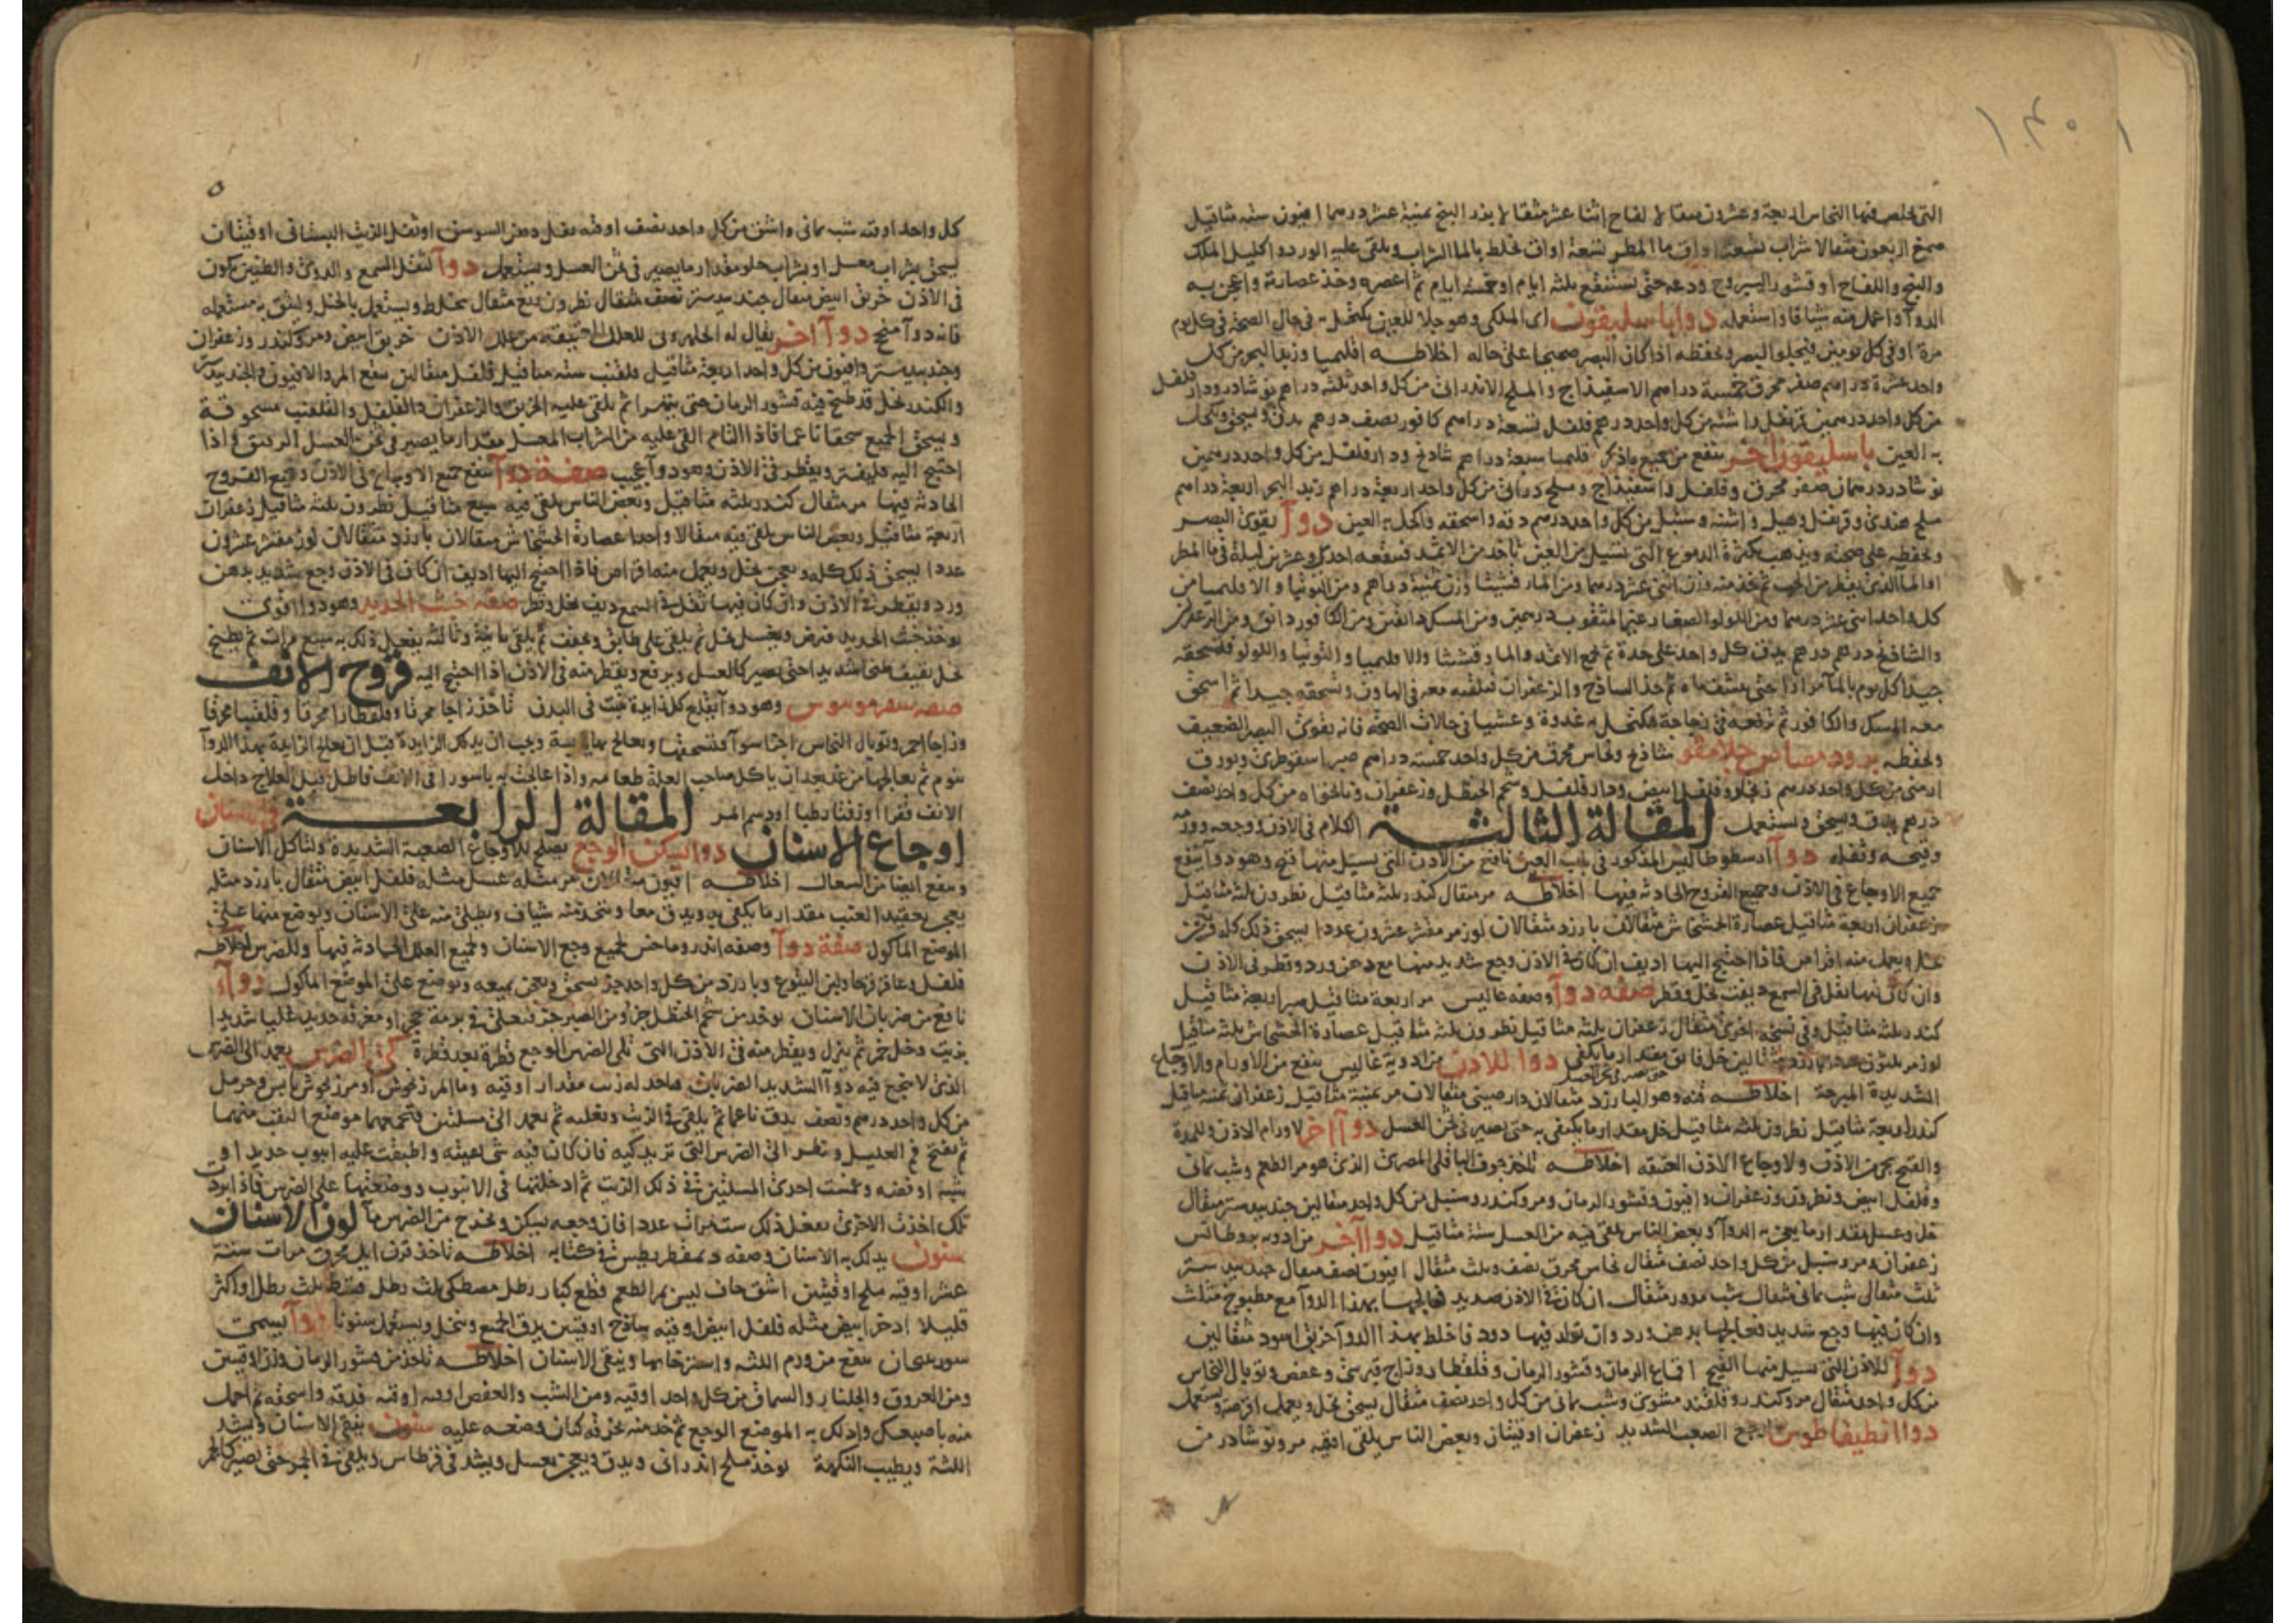 التى تخلص فيها النحاس اربعة وعشرون مثقالا لفاح اثنا عشر مثقالا بزر البنج ثمنية عشر درهما افيون ستة مثاقيل
صمغ اربعون مثقالا شراب تسعة اواق ما المطر تسعة اواق تخلط بالما الشراب ويلقى عليه الورد واكليل الملك
والبنج واللفاح او قشور اليبروح ودعه حتى يستنقع ثلثة ايام او خمسة ايام ثم اعصره وخذ عصارته واعجن به
الدوا واعمل منه شيافا واستعمله دوا باسليقون اى الملكى وهو جلا للعين يكتحل به فى حال الصحة فى كل يوم
مرة او فى كل يومين فيجلو البصر ويحفظه اذا كان البصر صحيحا على حاله اخلاطه اقليميا وزبد البحر من كل
واحد عشرة دراهم صفر محرق خمسة دراهم الاسفيذاج والملح الاندرانى من كل واحد ثلثة دراهم نوشادر ودار فلفل
من كل واحد درهمين قرنفل واشنه من كل واحد درهم فلفل تسعة دراهم كافور نصف درهم يدق ويسحق ويكحل
به العين باسليقون اخر ينفع من جميع ما ذكر قليميا سبعة دراهم شاذنج ودار فلفل من كل واحد درهمين
نوشادر درهمان صفر محرق وفلفل واسفيذاج وملح درانى من كل واحد اربعة دراهم زبد البحر اربعة دراهم
ملح هندى وقرنفل وهيل واشنه وسنبل من كل واحد درهم دقه واسحقه واكحل به العين دوآ يقوى البصر
ويحفظه على صحته ويذهب بكثرة الدموع التى تسيل من العين تاخذ من الاثمد فتنقعه احدى وعشرين ليلة فى ما المطر
او الما الذى يقطر من الحب ثم خذ منه وزن اثنى عشر درهما ومن المارقشيشا وزن ثمنية دراهم ومن التوتيا والاقليميا من
كل واحد اثنى عشر درهما ومن اللولو الصغار غير المثقوب درهمين ومن المسك دانقين ومن الكافور دانق ومن الزعفران
والشاذنج درهم درهم يدق كل واحد على حدة ثم تجمع الاثمد والمارقشيثا والاقليميا والتوتيا واللولو فتسحقه
جيدا كل يوم بالما مرارا حتى ينشف ماه ثم خذ الساذج والزعفران فتلقيه معه فى الهاون وتسحقه جيدا ثم اسحق
معه المسك والكافور ثم ترفعه فى زجاجة فتكتحل به غدوة وعشيا فى حالات الصحة فانه يقوى البصر الضعيف
ويحفظه برود شاذنج ونحاس محرق من كل واحد خمسة دراهم صبر اسقوطرى وبورق
ارمنى من كل واحد درهم زنجار وفلفل ابيض ودار فلفل وشحم الحنظل وزعفران ونانخواه من كل واحد نصف
درهم يدق ويسحق ويستعمل المقالة الثالثة الكلام فى الاذن ووجعه وورمه
وقيحه وثقله دوآ ارسطوطاليس المذكور فى باب العين نافع من الاذن التى يسيل منها قيح وهو دوآ ينفع
جميع الاوجاع فى الاذن وجميع القروح الحادثة فيها اخلاطه مر مثقال كندر ثلثة مثاقيل نطرون ثلثة مثاقيل
زعفران اربعة مثاقيل عصارة الخشخاش مثقالان بارزد مثقالان لوز مر مقشر عشرون عددا يسحق ذلك كله
بخل ويعمل منه اقراص فاذا احتيج اليها اديف ان كان فى الاذن وجع شديد منها مع دهن ورد وقطر فى الاذن
وان كان فيها ثقل فى السمع ديفت بخل وقطر صفه دوآ وصفه غاليس مر اربعة مثاقيل صبر اربعة مثاقيل
كندر ثلثة مثاقيل وفى نسخه اخرى مثقال زعفران ثلثة مثاقيل نطرون ثلثة مثاقيل عصارة الخشخاش ثلثة مثاقيل
لوز مر ثلثون عددا بارزد مثقالين خل فايق مقدار ما يكفى دوا للاذن من ادوية غاليس ينفع من الاورام والاوجاع
الشديدة المبرحة اخلاطه قنه وهو البارزد مثقالان دارصينى مثقالان مر ثمنية مثاقيل زعفران ثمنه مثاقيل
كندر اربعة مثاقيل نطرون ثلثة مثاقيل خل مقدار ما يكفى به حتى يصير فى ثخن العسل دوآ اخر لاورام الاذن وللمدة
والقيح يجرى من الاذن ولاوجاع الاذن العتيقه اخلاطه تاخذ جوف الباقلى المصرى الذى هو مر الطعم وشب يمانى
وفلفل ابيض ونطرون وزعفران وافيون وقشور الرمان ومر وكندر وسنبل من كل واحد مثقالين جندبيدستر مثقال
خل وعسل مقدار ما يعجن به الدوآ وبعض الناس يلقى فيه من العسل ستة مثاقيل دوا آخر من ادويه
زعفران ومر وسنبل من كل واحد نصف مثقال نحاس محرق نصف وثلث مثقال افيون نصف مثقال جندبيدستر
ثلث مثقال شب يمانى مثقال شب مدور مثقال ان كان فى الاذن صديد فعالجها بهذا الدوآ مع مطبوخ مثلث
وان كان فيها وجع شديد فعالجها بدهن ورد وان تولد فيها دود فاخلط بهذا الدوآ خربق اسود مثقالين
دوآ للاذن التى تسيل منها القيح اقماع الرمان وقشور الرمان وقلقطار وزاج قبرسى وعفص وتوبال النحاس
من كل واحد مثقال مر وكندر وقلقند مشوى وشب يمانى من كل واحد نصف مثقال يسحق بخل ويعمل اقرصه ويستعمل
دوا انطيفاطوس الوجع الصعب الشديد زعفران اوقيتان وبعض الناس يلقى اوقيه مر ونوشادر من
٥
كل واحد اوقيه شب يمانى واشق من كل واحد نصف اوقيه ثقل دهن السوسن او ثقل الزيت البستانى اوقيتان
يسحق بشراب معسل او بشراب حلو مقدار ما يصير فى ثخن العسل ويستعمل دوآ لثقل السمع والدوى والطنين يكون
فى الاذن خربق ابيض مثقال جندبيدستر نصف مثقال نطرون ربع مثقال يخلط ويستعمل بالخل وليثق به مستعمله
فانه دوآ منجح دوآ اخر يقال له للعلل العتيقه من علل الاذن خربق ابيض ومر وكندر وزعفران
وجندبيدستر وافيون من كل واحد اربعة مثاقيل قلقنت ستة مثاقيل فلفل مثقالين ينقع المر والافيون والجندبيدستر
والكندر بخل قد طبخ فيه قشور الرمان حتى يتهرا ثم يلقى عليه الخربق والزعفران والفلفل والقلقنت مسحوقة
ويسحق الجميع سحقا ناعما فاذا التام القى عليه من الشراب المعسل مقدار ما يصير فى ثخن العسل الرقيق فاذا
احتيج اليه فليفتر ويقطر فى الاذن وهو دوآ عجيب صفة دوآ ينفع جميع الاوجاع فى الاذن وجميع القروح
الحادثه فيها مر مثقال كندر ثلثه مثاقيل وبعض الناس يلقى فيه سبع مثاقيل نطرون ثلثة مثاقيل زعفران
اربعة مثاقيل وبعض الناس يلقى فيه مثقالا واحدا عصارة الخشخاش مثقالان بارزد مثقالان لوز مقشر عشرون
عددا يسحق ذلك كله ويعجن بخل ويعمل منه اقراص فاذا احتيج اليها اديف ان كان فى الاذن وجع شديد بدهن
ورد ويقطر فى الاذن وان كان فيها ثقل فى السمع ديف بخل وقطر صفه خبث الحديد وهو دوا اقوى
يوخذ خبث الحديد فيرض ويغسل بخل ثم يلقى على طابق ويجفف ثم يلقى ثانية وثالثه يفعل ذلك به سبع مرات ثم يطبخ
بخل ثقيف طبخا شديدا حتى يصير كالعسل ويرفع ويقطر منه فى الاذن اذا احتيج اليه قروح الانف
صفه وهو دوآ يقلع كل زايدة نبتت فى البدن تاخذ زاجا محرقا وقلقطارا محرقا وقلقنتا محرقا
وزاجا احمر وتوبال النحاس اجزا سوآ فتسحقها وتعالج بها يابسة ويجب ان يدلك الزايدة قبل ان تعالج الزايدة بهذا الدوآ
بثوم ثم تعالجها من غد بعد ان ياكل صاحب العلة طعامه واذا عالجت به باسورا فى الانف فاطل قبل العلاج داخل
الانف قفرا او زفتا رطبا او دسم المر المقالة الرابعة فى الاسنان
اوجاع الاسنان دوا ليسكن الوجع يصلح للاوجاع الصعبة الشديدة ولتاكل الاسنان
وينفع ايضا من السعال اخلاطه افيون مثقالان مر مثله عسل مثله فلفل ابيض مثقال بارزد مثله
يعجن بعقيد العنب مقدار ما يكفى به ويدق معا ويتخذ منه شياف ويطلى منه على الاسنان ويوضع منها على
الموضع الماكول صفة دوآ وصفه اندروماخس لجميع وجع الاسنان ولجميع العلل الحادثه فيها وللضرس اخلاطه
فلفل وعاقرقرحا ولبن اليتوع وبارزد من كل واحد جز يسحق ويعجن بميعه ويوضع على الموضع الماكول دوآء
نافع من ضربان الاسنان يوخذ من شحم الحنظل جزو ومن الصبر جز فيغلى فى برمة حجر او مغرفه حديد غليا شديدا
بزيت وخل خمر ثم ينزل ويقطر منه فى الاذن التى تلى الضرس الوجع قطرة بعد قطرة كى الضرس يعمد الى الضرس
الذى لا ينجح فيه دوآ الشديد الضربان فياخذ له زيت مقدار اوقيه وما المرزنجوش او مرزنجوش يابس وحرمل
من كل واحد درهم ونصف يدق ناعما ثم يلقى فى الزيت وتغليه ثم تعمد الى مسلتين فتحميهما موضع الثقب منهما
ثم يفتح فم العليل وتنظر الى الضرس التى تريد كيه فان كان فيه شى نقيته واطبقت عليه انبوب حديد او
شبه او فضه وغمست احدى المسلتين فى ذلك الزيت ثم ادخلتها فى الانبوب ووضعتها على الضرس فاذا بردت
تلك اخذت الاخرى تفعل ذلك ست مرات عددا فان وجعه يسكن ويخرج من الضرس مآ لون الاسنان
سنون يدلك به الاسنان وصفه دمقطريطس فى كتابه اخلاطه تاخذ قرن ايل محرق مرات ستة
عشر اوقيه ملح اوقيتين اشق جاف ليس بمر الطعم قطع كبار رطل مصطكى ثلث رطل قسط ثلث رطل او اكثر
قليلا اذخر ابيض مثله فلفل ابيض اوقيه ساذج اوقيتين يدق الجميع وينخل ويستعمل سنونا دوآ يسمى
سوريجان ينفع من ورم اللثه واسترخايها وينقى الاسنان اخلاطه تاخذ من قشور الرمان وزن اوقيتين
ومن العروق والجلنار والسماق من كل واحد اوقيه ومن الشب والعفص اوقيه اوقيه فدقه واسحقه ثم احمل
منه باصبعك وادلك به الموضع الوجع ثم خذ منه بخرقه كتان وضعه عليه سنون ينقى الاسنان ويشد
اللثة ويطيب النكهة يوخذ ملح اندرانى ويدق ويعجن بعسل ويشد فى قرطاس ويلقى فى الجمر حتى يصير كالجمر